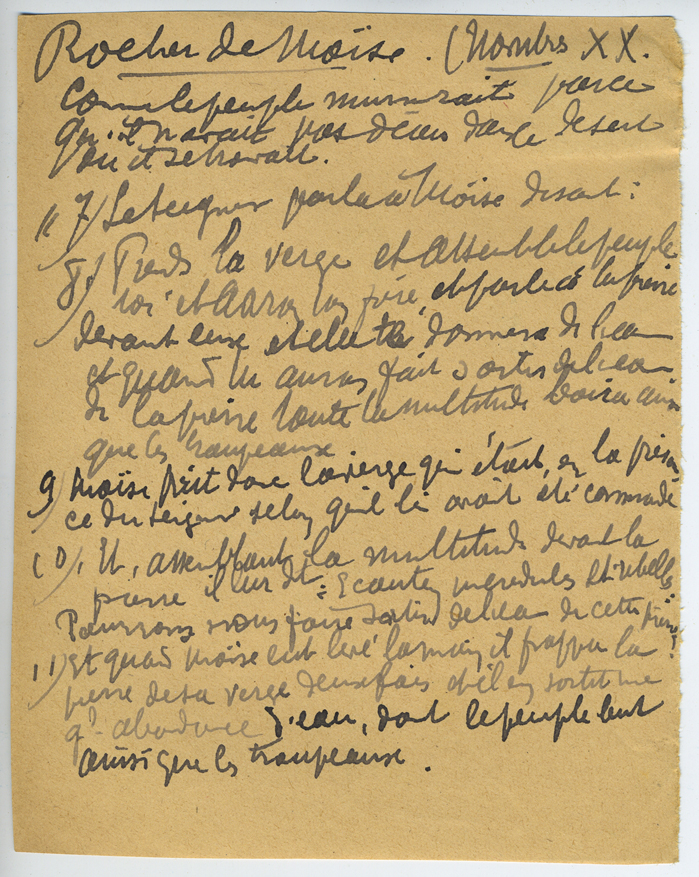 Rocher de Moïse. (Nombres XX.
Comme le peuple murmurait parce
qu'il n'avait pas d'eau dans le desert
ou il se trouvait.
" 7) Le Seigneur parla à Moïse disant :
8) Prends la verge et assemble le peuple
toi et Aaron ton frère, et parle à la pierre
devant eux et elle te donnera de l'eau
et quand tu auras fait sortir de l'eau
de la pierre toute la multitude boira ainsi
que les troupeaux
9) Moïse prit donc la verge qui était en la présen
ce du Seigneur selon qu'il lui avait été commandé
10). Et, assemblant la multitude devant la
pierre il leur dit : Ecoutez incrédules et rebelles
Pourrons nous faire sortir de l'eau de cette pierre ?
11) Et quand Moïse eut levé la main, il frappa la
pierre de sa verge deux fois et il en sortit une
gde abondance d'eau, dont le peuple but
ainsi que les troupeaux.